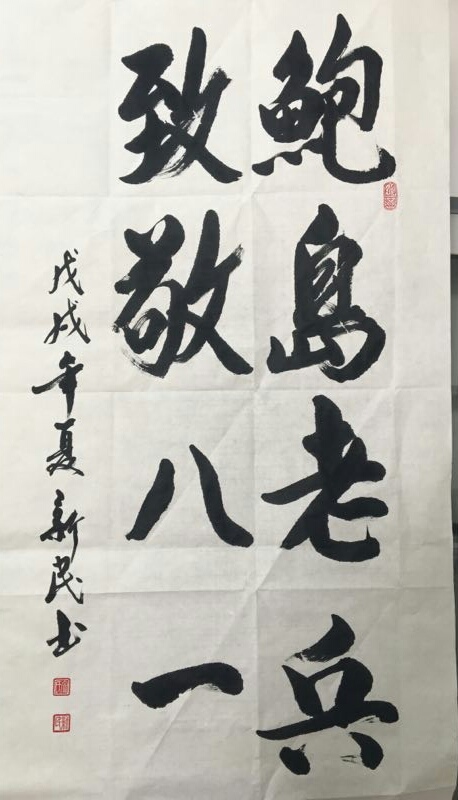 鲍岛老兵
致敬八一
戊戌年夏新民书